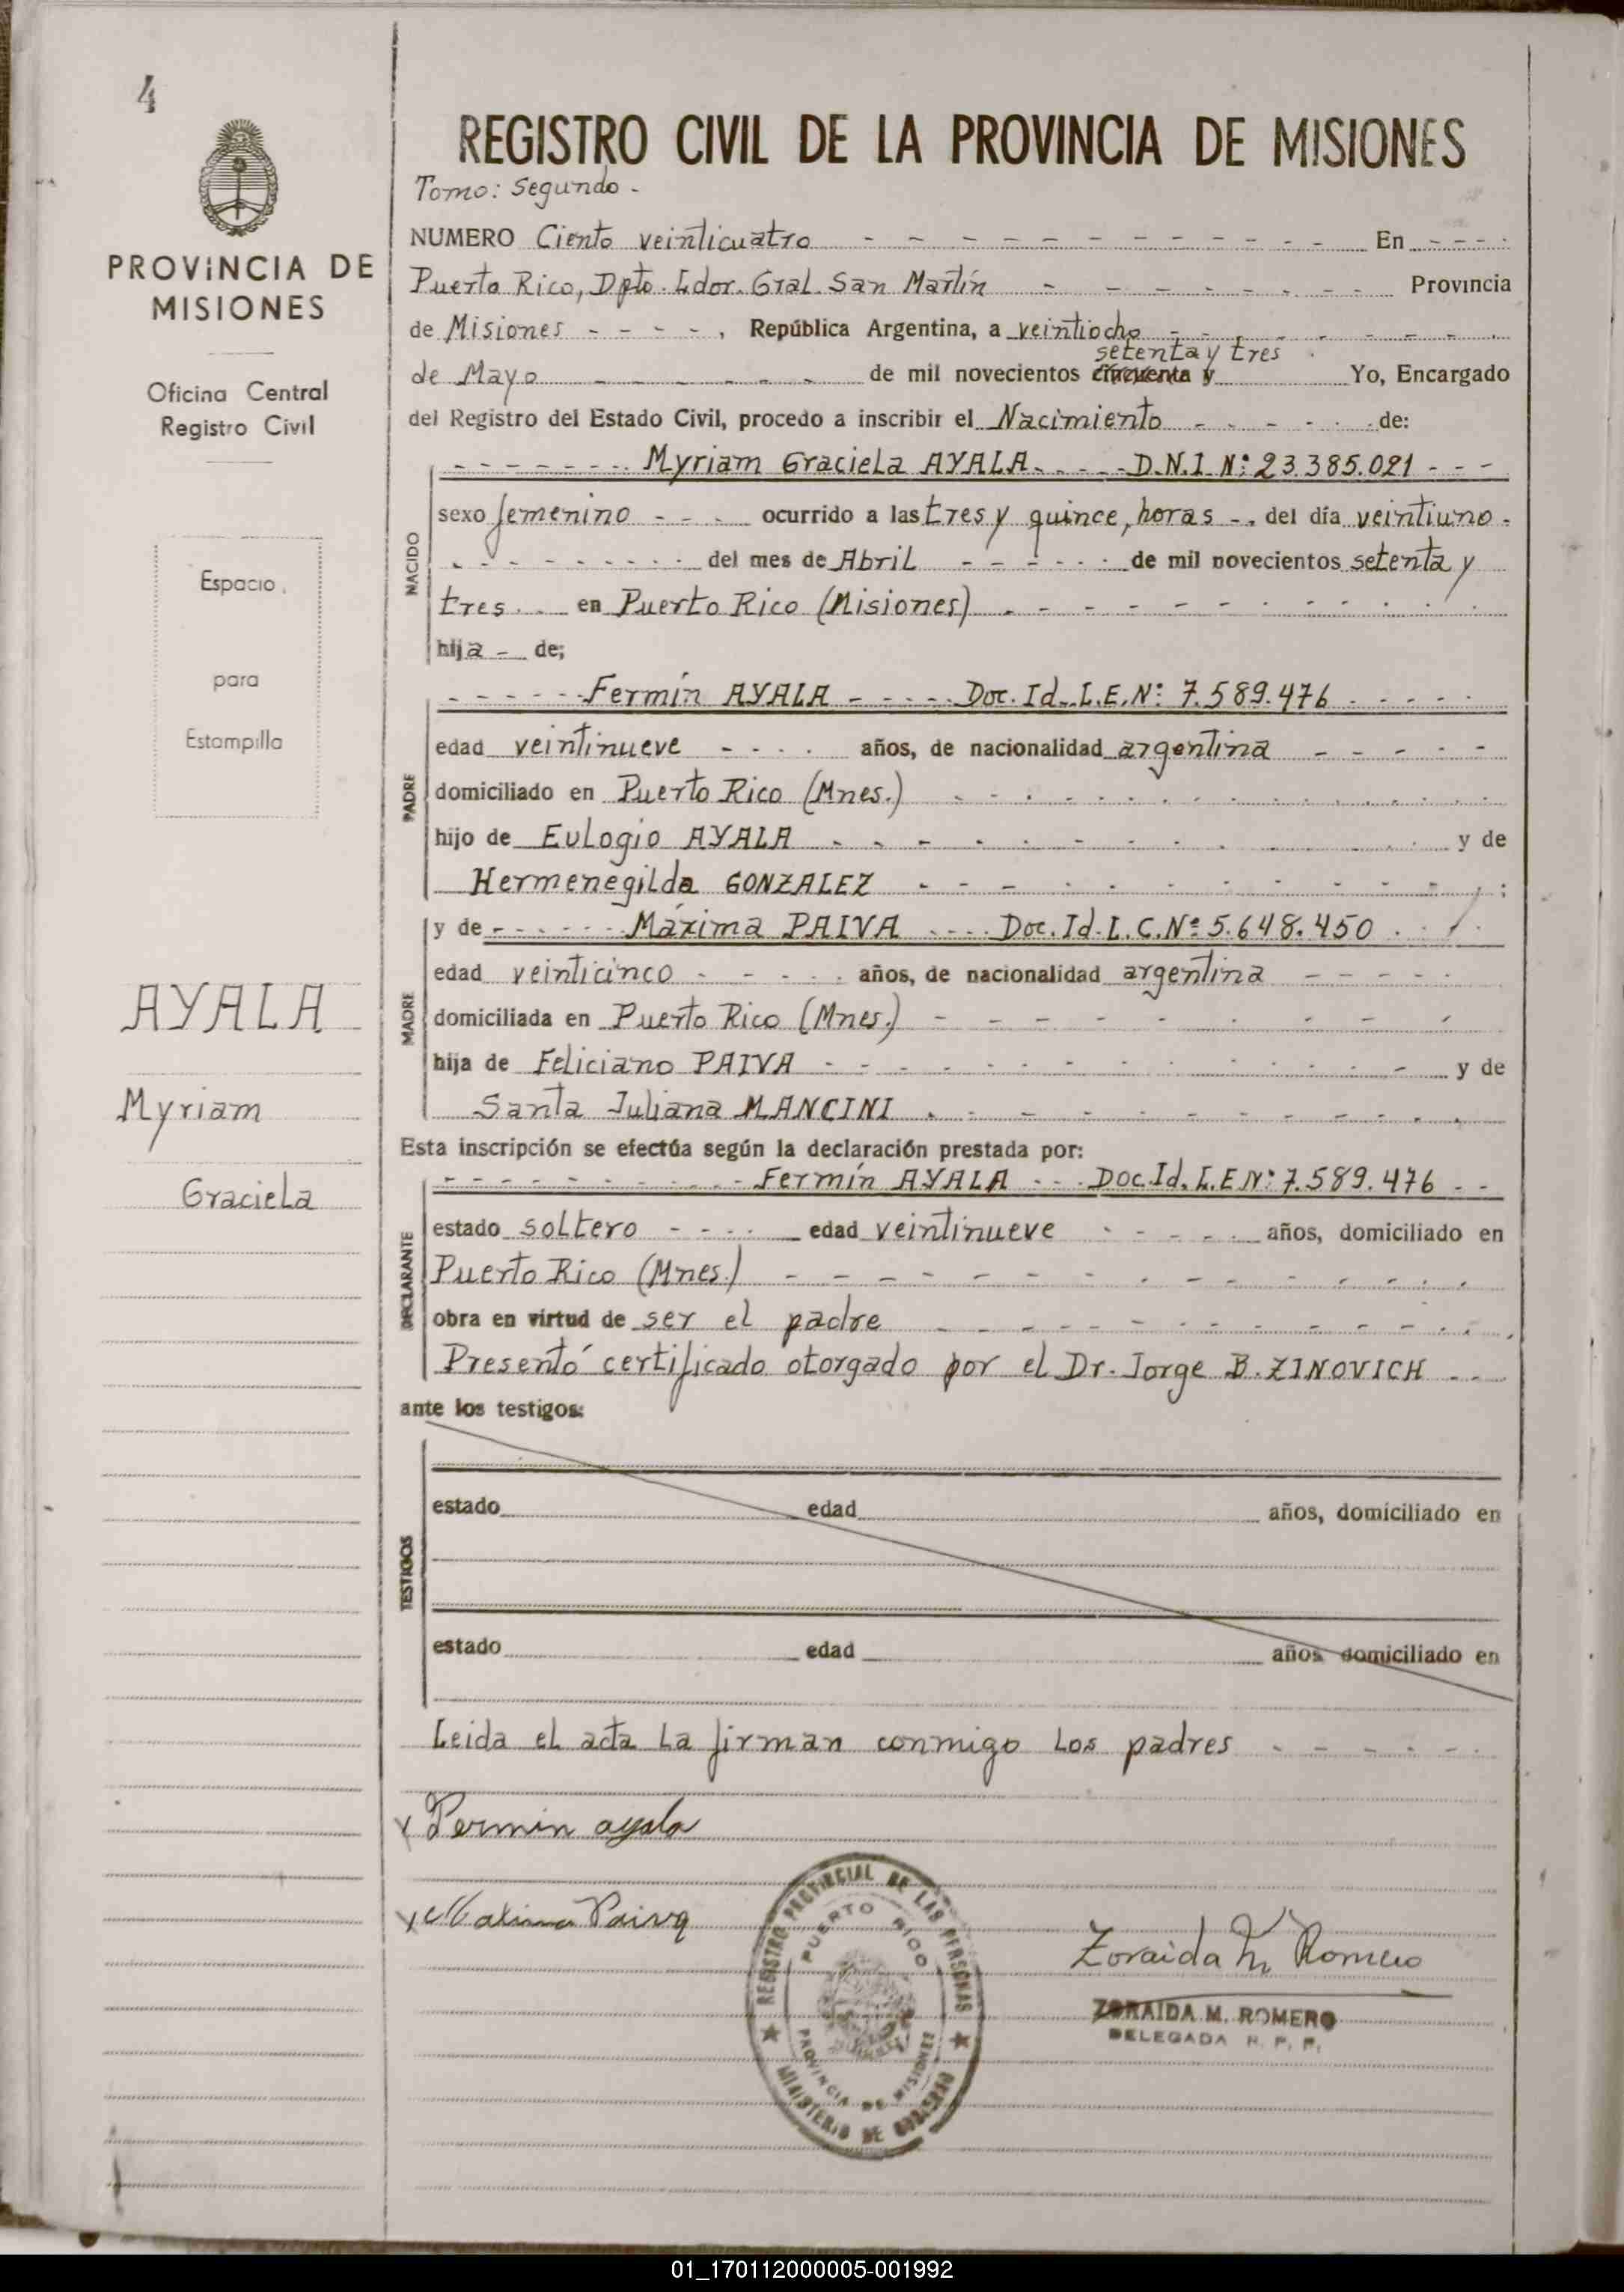 4
PROVINCIA DE
MISIONES
Oficina Central
Registro Civil
Espacio
para
Estampilla
AYALA
Myriam
Graciela
REGISTRO CIVIL DE LA PROVINCIA DE MISIONES
Tomo: Segundo -
NUMERO Ciento veinticuatro - - - - - - - - - - - En - - - -
Puerto Rico, Dpto. Ldor. Gral. San Martín - - - - - - - - Provincia
de Misiones - - - -, República Argentina, a veintiocho - - - - - - - -
setenta y tres
de Mayo - - - - - - de mil novecientos cincuenta y Yo, Encargado
del Registro del Estado Civil, procedo a inscribir el Nacimiento - - - - - de:
- - - - - - - Myriam Graciela AYALA - - - - D.N.I. N: 23.385.021 - - -
NACIDO
sexo femenino - - - ocurrido a las tres y quince, horas - - del día veintiuno -
- - - - - - - - del mes de Abril - - - - - - de mil novecientos setenta y
tres - - en Puerto Rico (Misiones) - - - - - - - - - - -
hija - de;
- - - - - - Fermín AYALA - - - - - Doc. Id. L.E. N: 7.589.476 - - - -
PADRE
edad veintinueve - - - - años, de nacionalidad argentina - - - - -
domiciliado en Puerto Rico (Mnes.) - - - - - - - - - - -
hijo de Eulogio AYALA - - - - - - - - - - y de
Hermenegilda GONZALEZ - - - - - - - - - - ;
y de - - - - - - Máxima PAIVA - - - - Doc. Id. L.C. Nº 5.648.450 - - -
MADRE
edad veinticinco - - - - - años, de nacionalidad argentina - - - - -
domiciliada en Puerto Rico (Mnes.) - - - - - - - - - -
hija de Feliciano PAIVA - - - - - - - - - - - y de
Santa Juliana MANCINI - - - - - - - - - - -
Esta inscripción se efectúa según la declaración prestada por:
- - - - - - - - - - Fermín AYALA - - - Doc. Id. L.E N: 7.589.476 - -
DECLARANTE
estado soltero - - - - edad veintinueve - - - - - años, domiciliado en
Puerto Rico (Mnes.) - - - - - - - - - - - - - -
obra en virtud de ser el padre - - - - - - - - - - - -
Presentó certificado otorgado por el Dr. Jorge B. ZINOVICH - - -
ante los testigos:
TESTIGOS
estado edad años, domiciliado en
estado edad años domiciliado en
Leida el acta la firman conmigo los padres - - - - - -
x Fermin ayala
x Maxima Paiva
REGISTRO PROVINCIAL DE LAS PERSONAS
PUERTO RICO
PROVINCIA DE MISIONES
MINISTERIO DE GOBIERNO
Zoraida M Romero
ZORAIDA M. ROMERO
DELEGADA R. P. P.
01_170112000005-001992